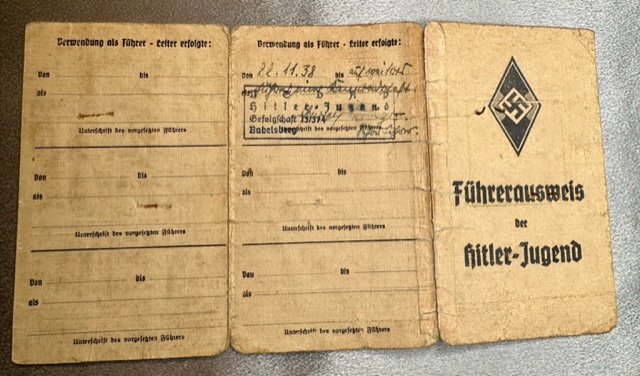 Verwendung als Führer - Leiter erfolgte:
Von bis
als
Unterschrift des vorgesetzten Führers
Von bis
als
Unterschrift des vorgesetzten Führers
Von bis
als
Unterschrift des vorgesetzten Führers
Verwendung als Führer - Leiter erfolgte:
Von 22.11.38 bis auf weiteres
als
Hitler-Jugend
Gefolgschaft 13/374
Babelsberg
Unterschrift des vorgesetzten Führers
Von bis
als
Unterschrift des vorgesetzten Führers
Von bis
als
Unterschrift des vorgesetzten Führers
Führerausweis
der
Hitler-Jugend